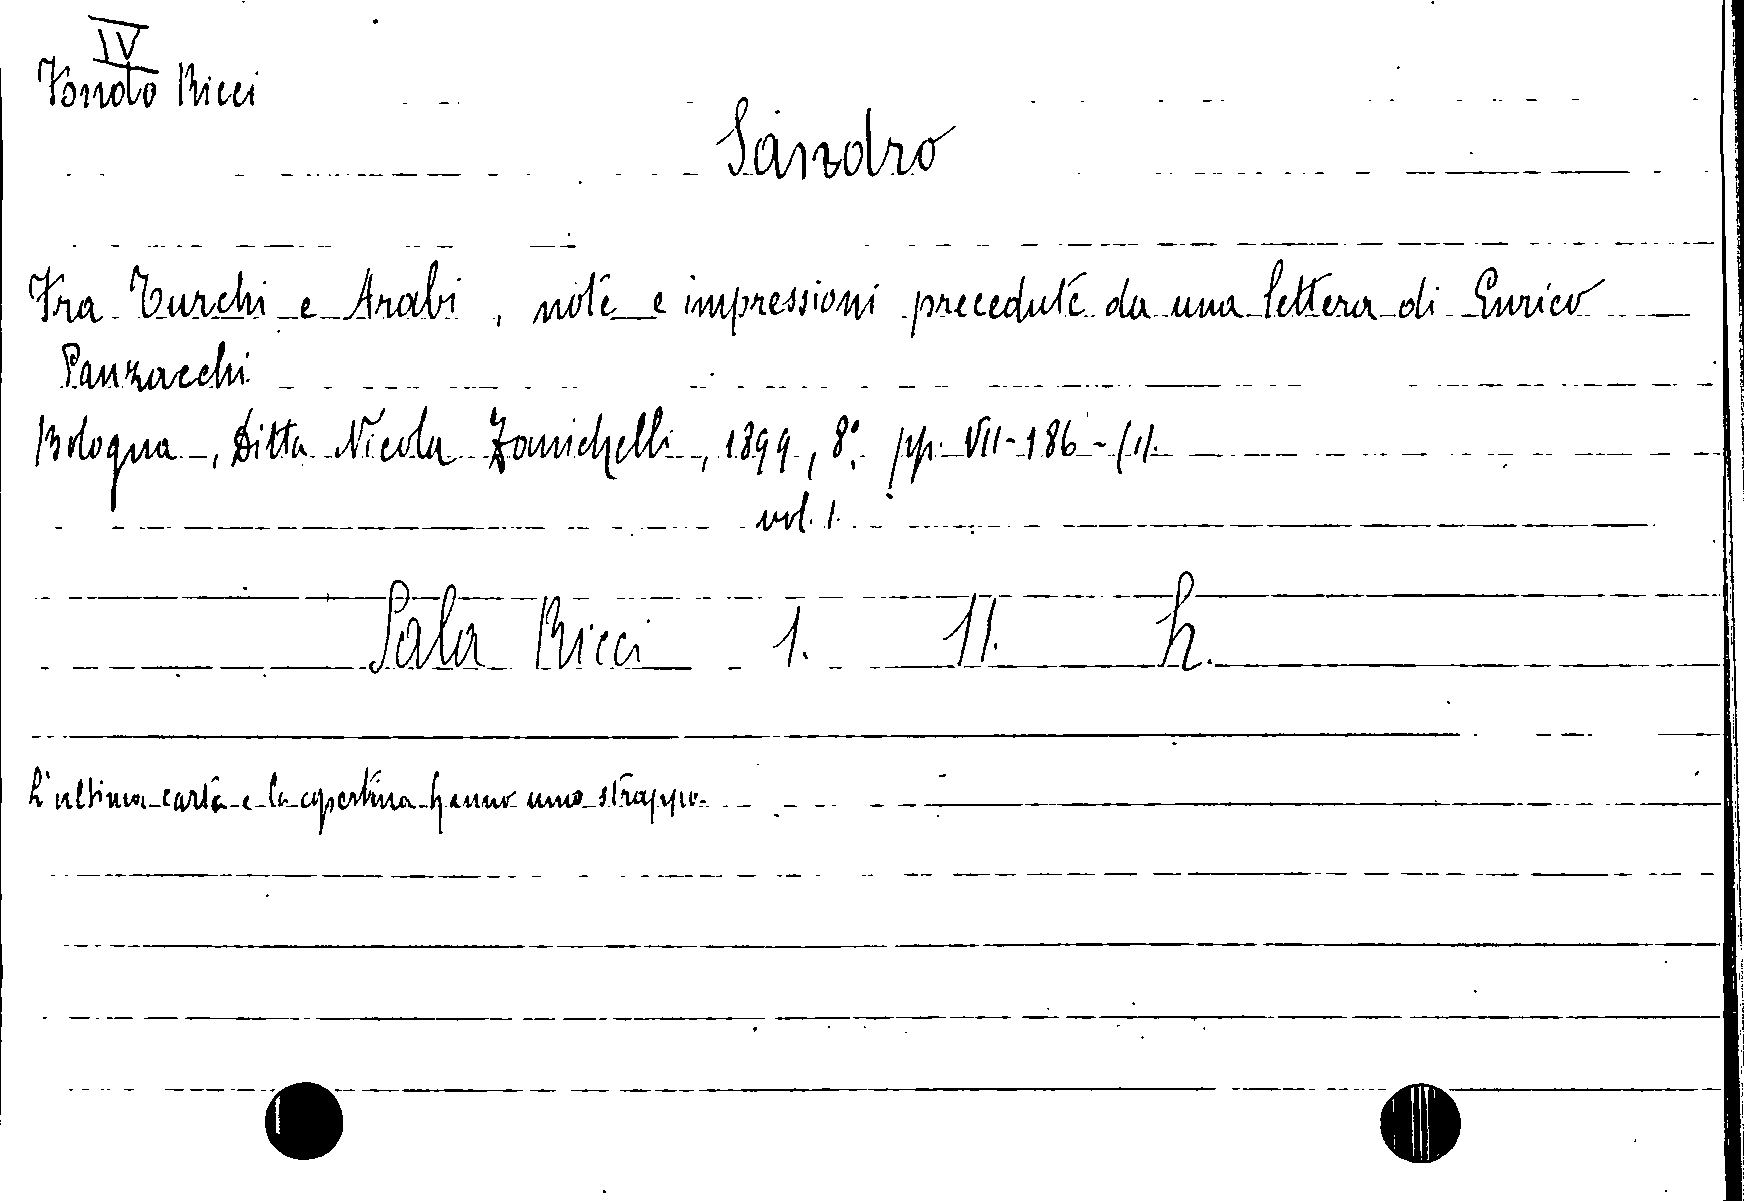 IV
Fondo Ricci
Sandro
Fra Turchi e Arabi, note e impressioni precedute da una lettera di Enrico
Panzacchi
Bologna, Ditta Nicola Zanichelli, 1899, 8.° pp. VII-186-(1).
vol. 1.
Sala Ricci 1. 11. h.
L'ultima carta e la copertina hanno uno strappo.